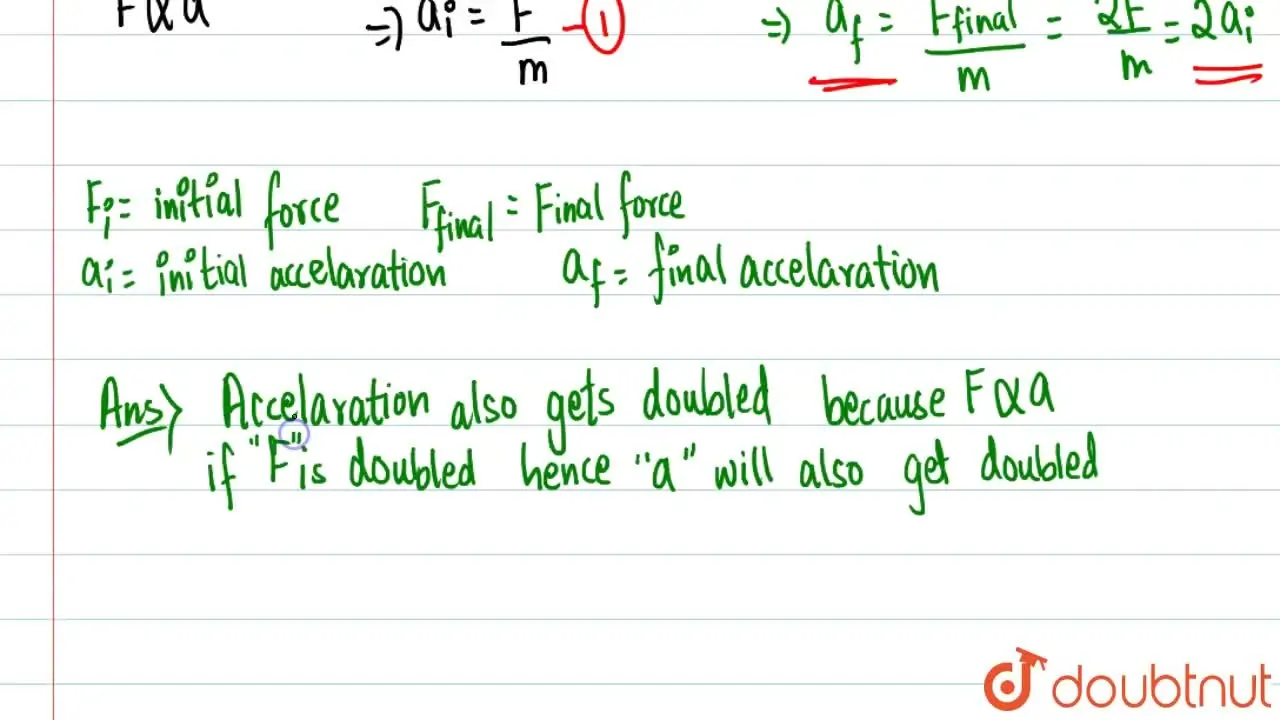 F α a
=> ai = F/m -①
=> af = Ffinal/m = 2F/m = 2ai
Fi = initial force Ffinal = Final force
ai = initial accelaration af = final accelaration
Ans> Accelaration also gets doubled because F α a
if "F" is doubled hence "a" will also get doubled
doubtnut